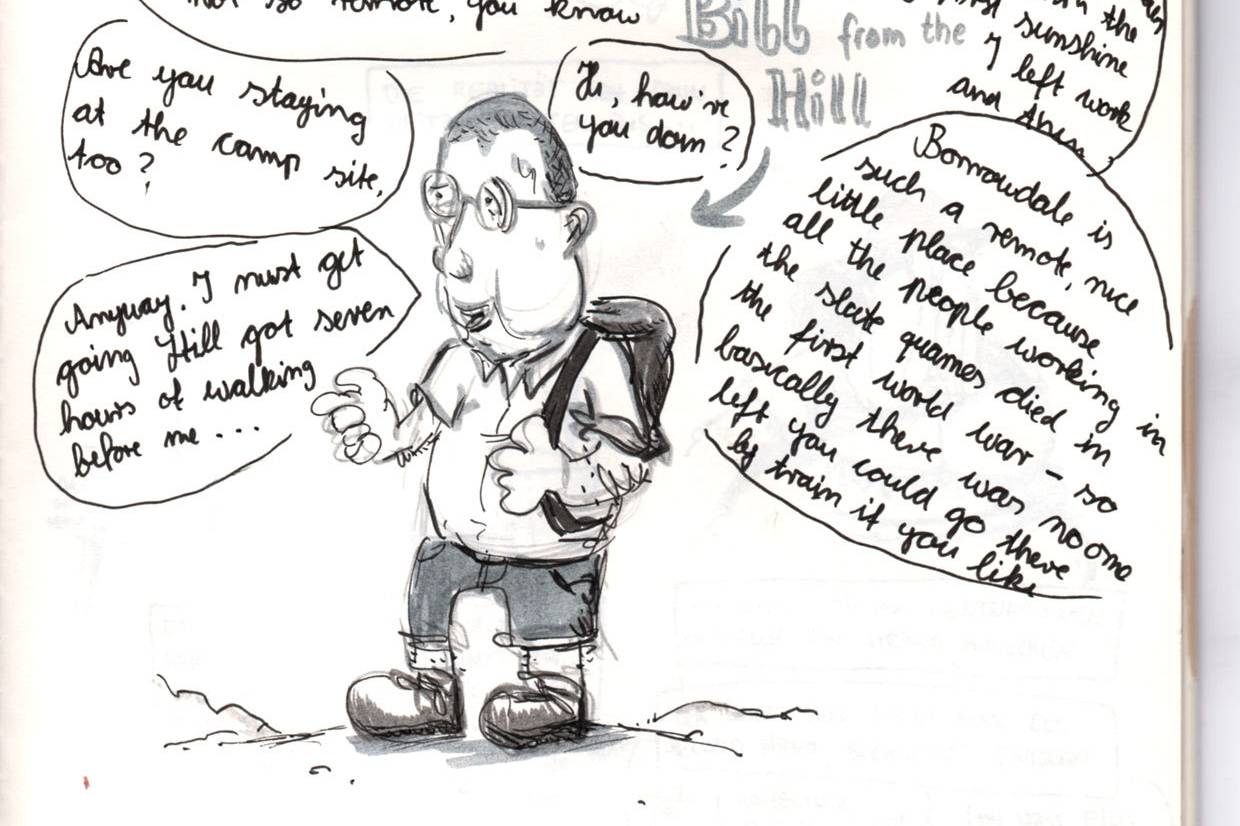 not so remote, you know
Bill from the
Hill
the
first sunshine
I left work
and then
Are you staying
at the camp site,
too?
Hi, how're
you doin?
Borrowdale is
such a remote, nice
little place because
all the people working in
the slate quarries died in
the first world war - so
basically there was noone
left you could go there
by train if you like
Anyway. I must get
going still got seven
hours of walking
before me ...